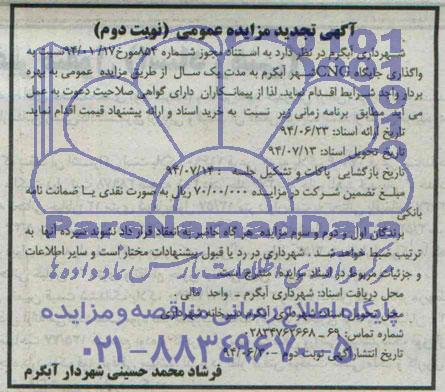 آگهی تجدید مزایده عمومی (نوبت دوم)
شهرداری آبگرم در نظر دارد به استناد مجوز شماره ۸۵۲مورخ ۹۴/۰۱/۱۷نسبت به
واگذاری جایگاه CNGشهر آبگرم به مدت یک سال از طریق مزایده عمومی به بهره
بردار واجد شرایط اقدام نماید. لذا از پیمانکاران دارای گواهی صلاحیت دعوت به عمل
می آید مطابق برنامه زمانی زیر نسبت به خرید اسناد و ارائه پیشنهاد قیمت اقدام نماید.
تاریخ ارائه اسناد: ۹۴/۰۶/۲۳
تاریخ تحویل اسناد: ۹۴/۰۷/۱۳
تاریخ بازگشایی پاکات و تشکیل جلسه : ۹۴/۰۷/۱۴
مبلغ تضمین شرکت در مزایده ۷۰/۰۰۰/۰۰۰ ریال به صورت نقدی یا ضمانت نامه
بانکی
برندگان اول و دوم و سوم مزایده هر گاه حاضر به انعقاد قرار داد نشوند سپرده آنها به
ترتیب ضبط خواهد شد . شهرداری در رد یا قبول پیشنهادات مختار است و سایر اطلاعات
و جزئیات مربوط در اسناد مزایده مندرج است.
محل دریافت اسناد: شهرداری آبگرم - واحد مالی
محل تحویل اسناد: شهرداری آبگرم دبیرخانه شهرداری
شماره تماس: ۶۹ ـ ۰۲۸۳۴۷۶۲۶۶۸
تاریخ انتشار آگهی نوبت دوم ۹۴/۰۶/۳۰
فرشاد محمد حسینی شهردار آبگرم
ParsNamadData
پایگاه اطلاع رسانی مناقصه و مزایده
۰۲۱-۸۸۳۴۹۶۷۰-۵